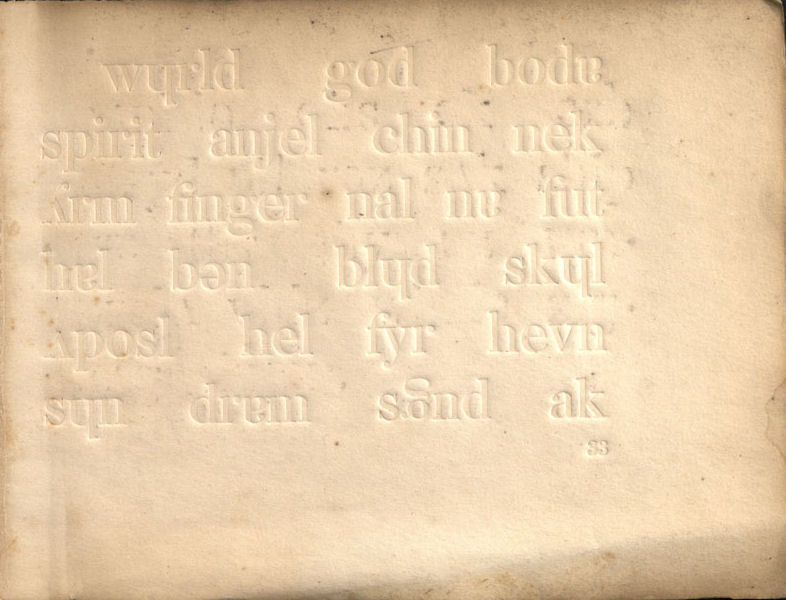 wɥrld god bodɐ
spirit anjel chin nek
ʌrm finger nal nɐ fut
hɐl bən blɥd skɥl
ʌposl hel fyr hevn
sɥn drɐm sȣnd ak
33